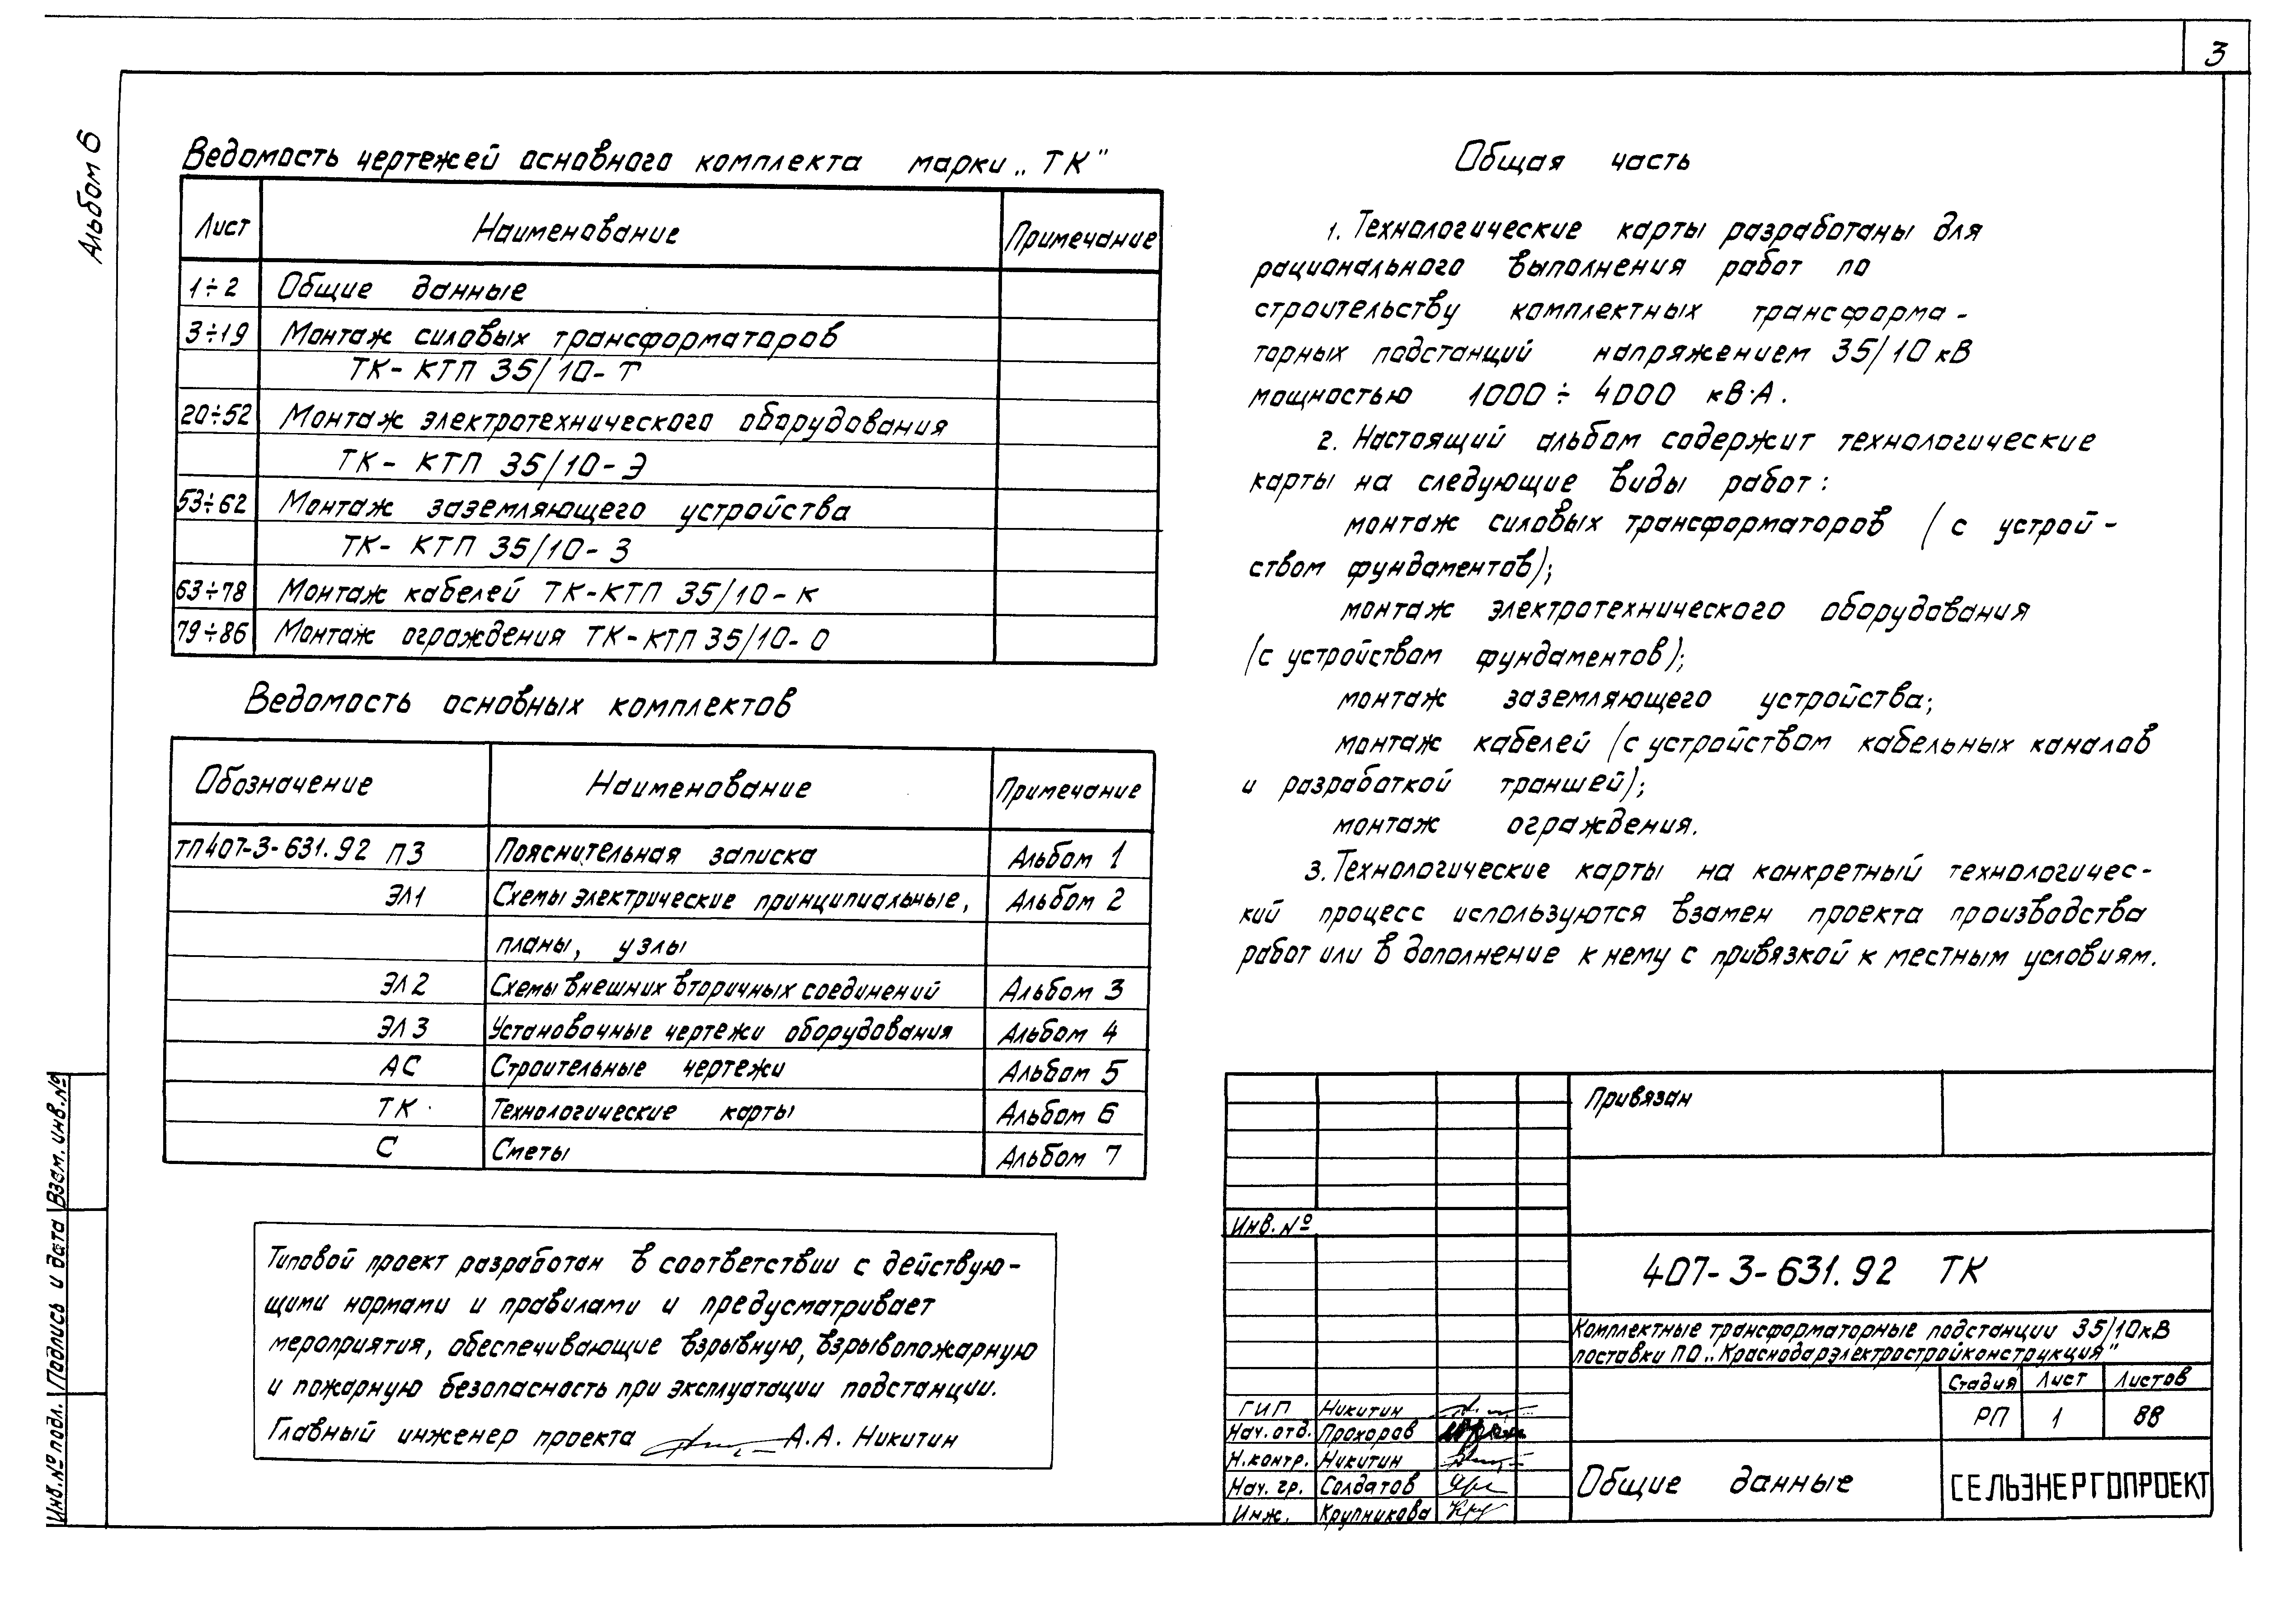 3
Альбом 6
Ведомость чертежей основного комплекта марки „ТК"
Лист Наименование Примечание
1÷2 Общие данные
3÷19 Монтаж силовых трансформаторов
ТК- КТП 35/10- Т
20÷52 Монтаж электротехнического оборудования
ТК- КТП 35/10- Э
53÷62 Монтаж заземляющего устройства
ТК- КТП 35/10- З
63÷78 Монтаж кабелей ТК-КТП 35/10- К
79÷86 Монтаж ограждения ТК-КТП 35/10- О
Ведомость основных комплектов
Обозначение Наименование Примечание
ТП407-3-631.92 ПЗ Пояснительная записка Альбом 1
ЭЛ1 Схемы электрические принципиальные, Альбом 2
планы, узлы
ЭЛ2 Схемы внешних вторичных соединений Альбом 3
ЭЛ3 Установочные чертежи оборудования Альбом 4
АС Строительные чертежи Альбом 5
ТК Технологические карты Альбом 6
С Сметы Альбом 7
Типовой проект разработан в соответствии с действую-
щими нормами и правилами и предусматривает
мероприятия, обеспечивающие взрывную, взрывопожарную
и пожарную безопасность при эксплуатации подстанции.
Главный инженер проекта А.А. Никитин
Общая часть
1. Технологические карты разработаны для
рационального выполнения работ по
строительству комплектных трансформа-
торных подстанций напряжением 35/10 кВ
мощностью 1000÷4000 кВ·А.
2. Настоящий альбом содержит технологические
карты на следующие виды работ:
монтаж силовых трансформаторов (с устрой-
ством фундаментов);
монтаж электротехнического оборудования
(с устройством фундаментов);
монтаж заземляющего устройства;
монтаж кабелей (с устройством кабельных каналов
и разработкой траншей);
монтаж ограждения.
3. Технологические карты на конкретный технологичес-
кий процесс используются взамен проекта производства
работ или в дополнение к нему с привязкой к местным условиям.
Привязан
Инв. №
407-3-631.92 ТК
Комплектные трансформаторные подстанции 35/10кВ
поставки ПО „Краснодарэлектростройконструкция"
Стадия Лист Листов
РП 1 88
ГИП Никитин
Нач. отд. Прохоров
Н.контр. Никитин
Нач. гр. Солдатов
Инж. Крупникова
Общие данные
СЕЛЬЭНЕРГОПРОЕКТ
Инв.№ подл. Подпись и дата Взам. инв.№